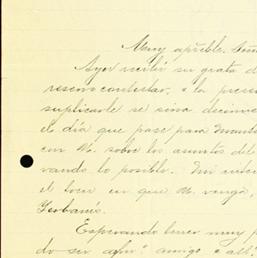 Muy apreble. Señ
Ayer recibí su grata d
reservo contestar, a la prese
suplicarle se sirva decirme
el día que pase para Mont
con U. sobre los asuntos del
vando lo posible. Mi
el tren en que U. venga,

Esperando tener muy p
do ser afmo. amigo